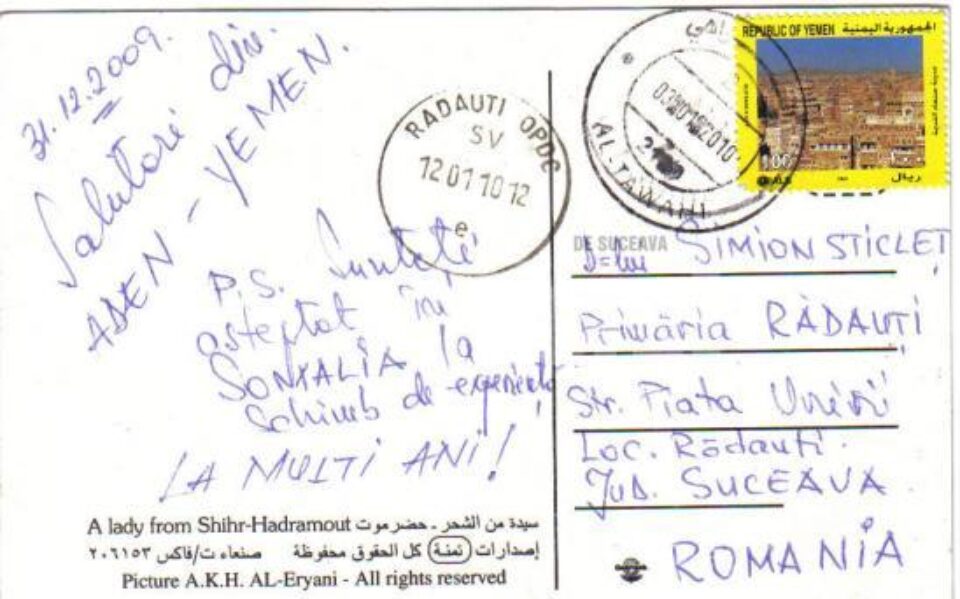 31.12.2009.
Salutări din.
ADEN - YEMEN.
P.S. Sunteți
așteptat în
SOMALIA la
schimb de experiență
LA MULTI ANI!
A lady from Shihr-Hadramout سيدة من الشحر - حضرموت
إصدارات (ثمنة) كل الحقوق محفوظة صنعاء ت/فاكس ٢٠٦١٥٣
Picture A.K.H. AL-Eryani - All rights reserved
RADAUTI OPDC
SV
12 01 10 12
e
AL-TAWAHI
REPUBLIC OF YEMEN الجمهورية اليمنية
مدينة صنعاء القديمة
100
١٠٠
ريال
DE SUCEAVA
D-lui SIMION STICLEȚ
Primăria RĂDAUȚI
Str. Piata Unirii
Loc. Rădauti.
Jud. SUCEAVA
ROMANIA